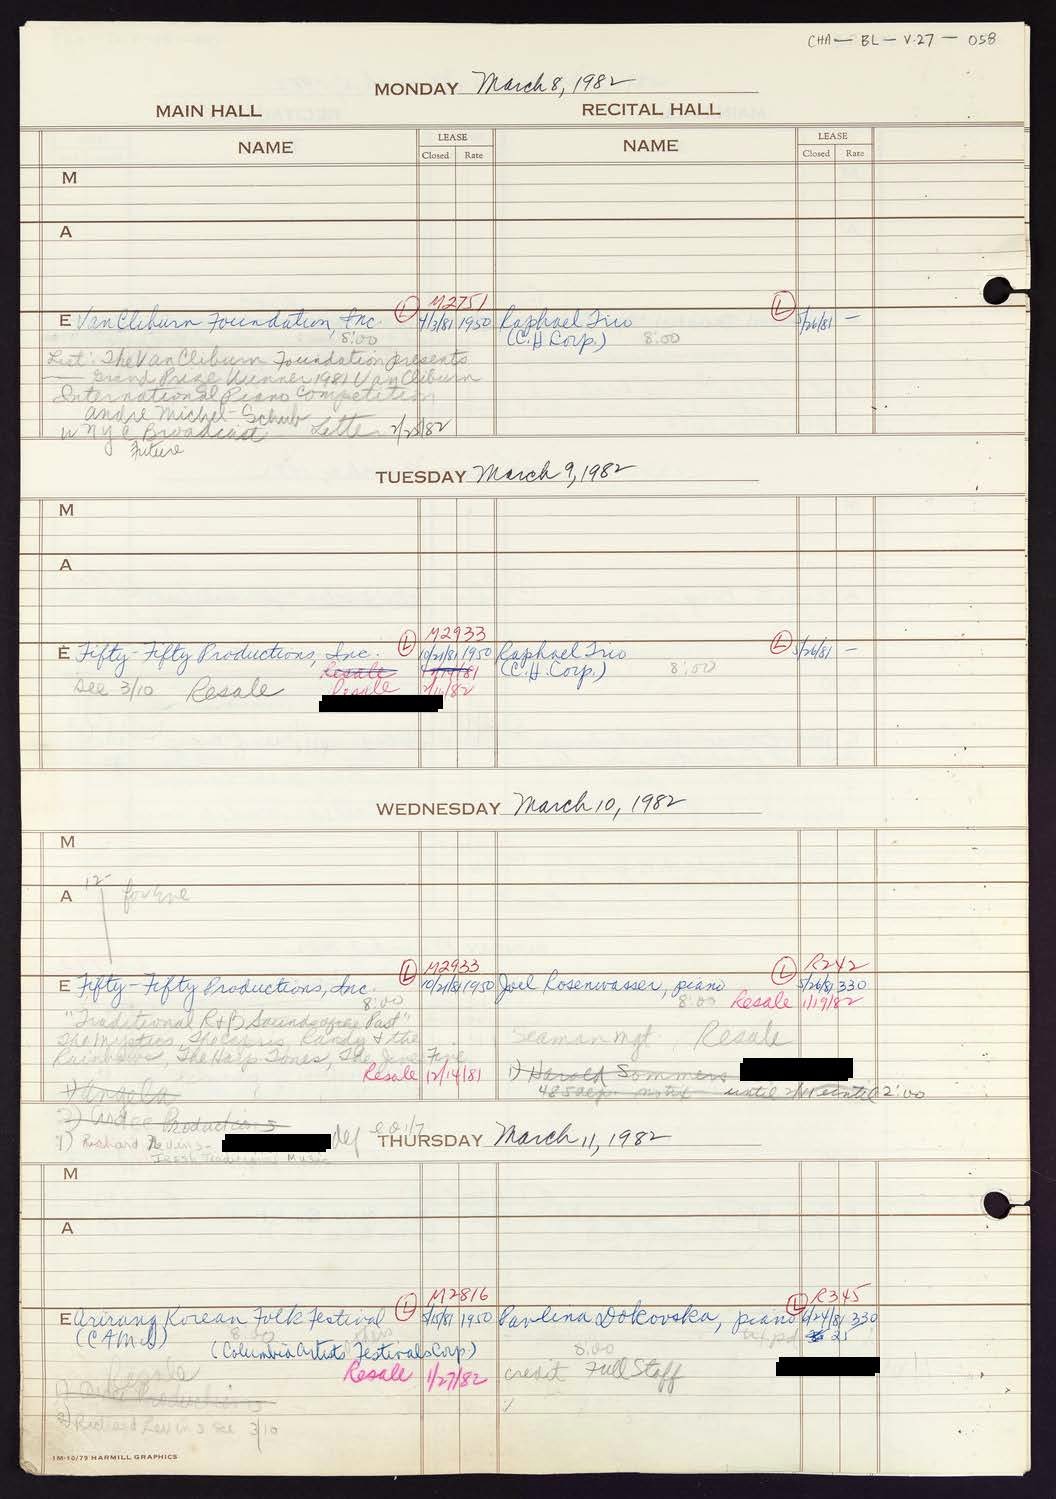 CHA — BL — V.27 — 058
MONDAY March 8, 1982
MAIN HALL RECITAL HALL
NAME LEASE NAME LEASE
Closed Rate Closed Rate
M
A
M2751
E Van Cliburn Foundation, Inc. L 4/3/81 1950 Raphael Trio L 5/26/81 —
8:00 (C.H. Corp.) 8:00
List: The Van Cliburn Foundation presents
Grand Prize Winner 1981 Van Cliburn
International Piano Competition
Andre Michel-Schub
WNYC Broadcast Letter 2/25/82
Future
TUESDAY March 9, 1982
M
A
M2933
E Fifty-Fifty Productions, Inc. L 10/21/81 1950 Raphael Trio L 5/26/81 —
Resale 12/14/81 (C.H. Corp.) 8:00
See 3/10 Resale Resale 2/11/82
WEDNESDAY March 10, 1982
M
12-
A for Eve
M2933 R242
E Fifty-Fifty Productions, Inc. L 10/21/81 1950 Joel Rosenwasser, piano L 5/26/81 330
8:00 8:00 Resale 1/19/82
"Traditional R+B Sounds of the Past"
The Mystics, The Capris, Randy & the Seaman Mgt. Resale
Rainbows, The Harp Tones, The Jive Five
Resale 12/14/81 1) Harold Sommers
1) Angela until 2:00
2) Productions
1) Richard Nevins-
Irish Traditional Music
THURSDAY March 11, 1982
M
A
M2816 R345
E Arirang Korean Folk Festival L 5/15/81 1950 Pavlina Dokovska, piano L 9/24/81 330
(CAMI) 8:00 21
(Columbia Artists Festivals Corp) 8:00
Resale Resale 1/27/82 credit Full Staff
1) Productions
2) Richard Nevins see 3/10
1M-10/79 HARMILL GRAPHICS